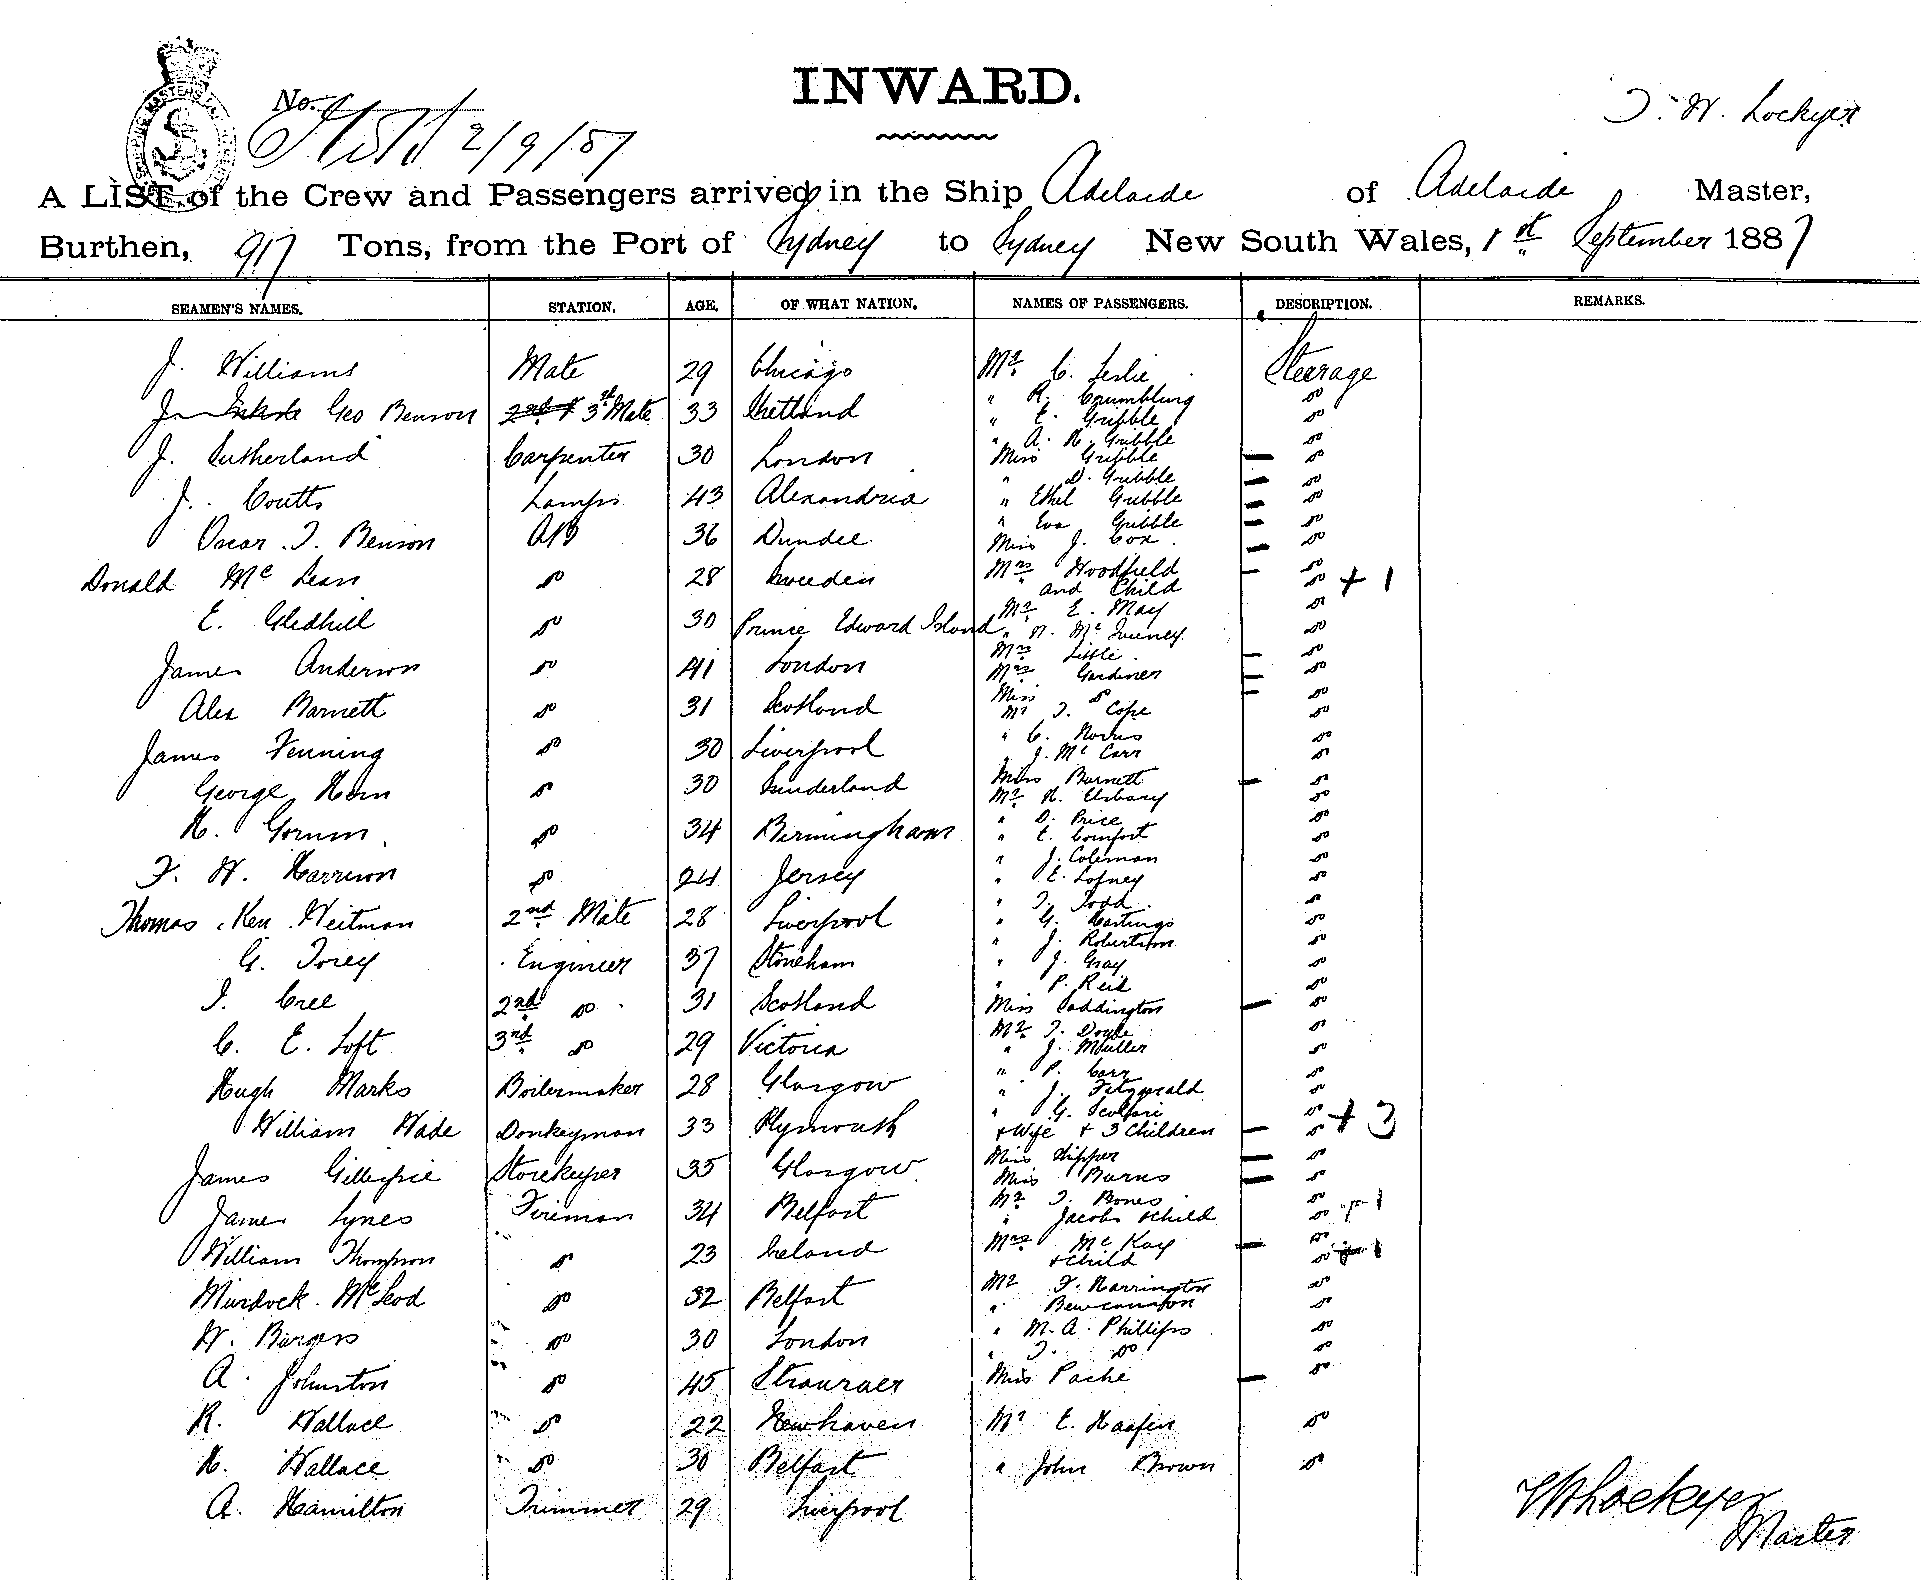 INWARD.
No.
2/9/87
T. H. Lockyer
A LIST of the Crew and Passengers arrived in the Ship Adelaide of Adelaide Master,
Burthen, 917 Tons, from the Port of Sydney to Sydney New South Wales, 1st September 1887
SEAMEN'S NAMES. STATION. AGE. OF WHAT NATION. NAMES OF PASSENGERS. DESCRIPTION. REMARKS.
J. Williams Mate 29 Chicago Mr C. Leslie Steerage
" R. Crumblung do
J Geo Benson 2nd & 3rd Mate 33 Shetland " E. Gribble do
" A. H. Gribble do
J. Sutherland Carpenter 30 London Miss Gribble — do
" D. Gribble — do
J. Coutts Lamps 43 Alexandria " Ethel Gribble — do
" Eva Gribble — do
Oscar T. Benson AB 36 Dundee Miss J. Cox — do
Donald McLean do 28 Sweeden Mrs Woodfield — do
and Child do + 1
Mr E. May do
E. Gledhill do 30 Prince Edward Island " do
Mrs Little — do
James Anderson do 41 London Mrs Gardiner — do
Miss do — do
Alex Barnett do 31 Scotland Mr T. Cope do
" C. do
James Fenning do 30 Liverpool " J. McCarr do
Miss Burnett — do
George Horn do 30 Sunderland Mr H. do
" D. Price do
H. Gorum do 34 Birmingham " E. Comfort do
" J. Coleman do
F. W. Harrison do 24 Jersey " E. Lofney do
" T. Todd do
Thomas Ken Weitman 2nd Mate 28 Liverpool " G. Hastings do
" J. Robertson do
G. Torey Engineer 37 Stoneham " J. Gray do
" P. Reid do
I. Cree 2nd do 31 Scotland Miss Paddington — do
Mr T. Doyle do
C. E. Loft 3rd do 29 Victoria " J. Muller do
" P. Carr do
Hugh Marks Boilermaker 28 Glasgow " J. Fitzgerald do
" G. do
William Wade Donkeyman 33 Plymouth + Wife + 3 Children — do + 3
Miss Kipper — do
James Gillespie Storekeeper 35 Glasgow Miss Burns — do
Mr T. Bones do
James Lynes Fireman 34 Belfast " Jacobs & child do + 1
Mrs McKay — do
William Thompson do 23 Ireland + Child do + 1
Murdock McLeod do 32 Belfast Mr F. Harrington do
" do
W. Burgess do 30 London " M. A. Phillips do
" T. do do
A. Johnston do 45 Stranraer Miss Pache — do
R. Wallace do 22 Newhaven Mr E. Haafen do
H. Wallace do 30 Belfast " John Brown do
A. Hamilton Trimmer 29 Liverpool
Lockyer
Master